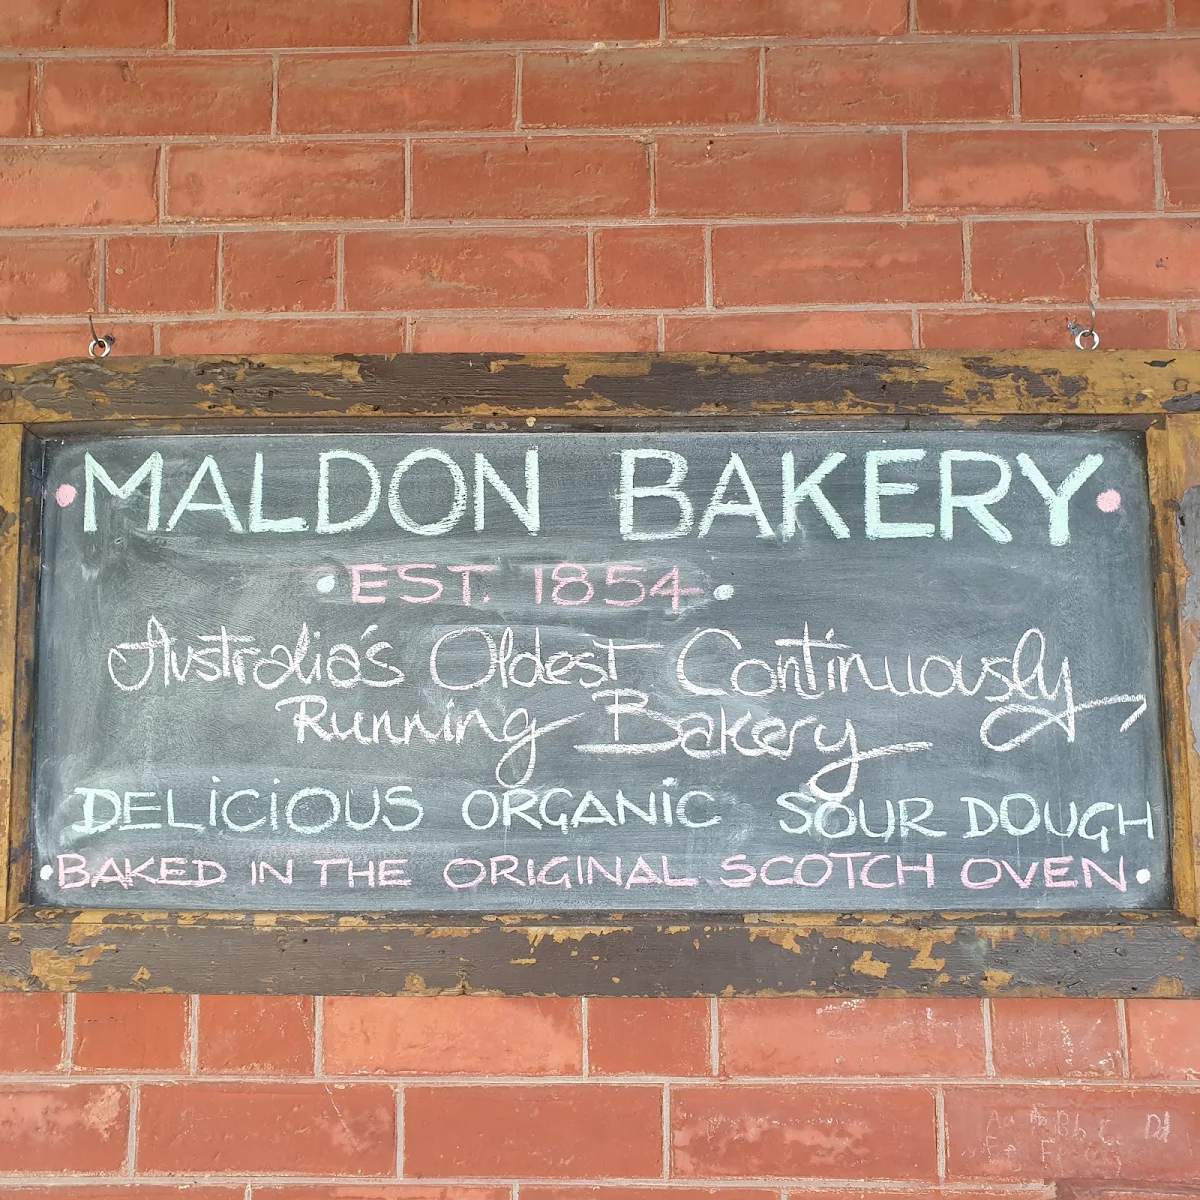 MALDON BAKERY
EST. 1854
Australia's Oldest Continuously
Running Bakery
DELICIOUS ORGANIC SOUR DOUGH
BAKED IN THE ORIGINAL SCOTCH OVEN